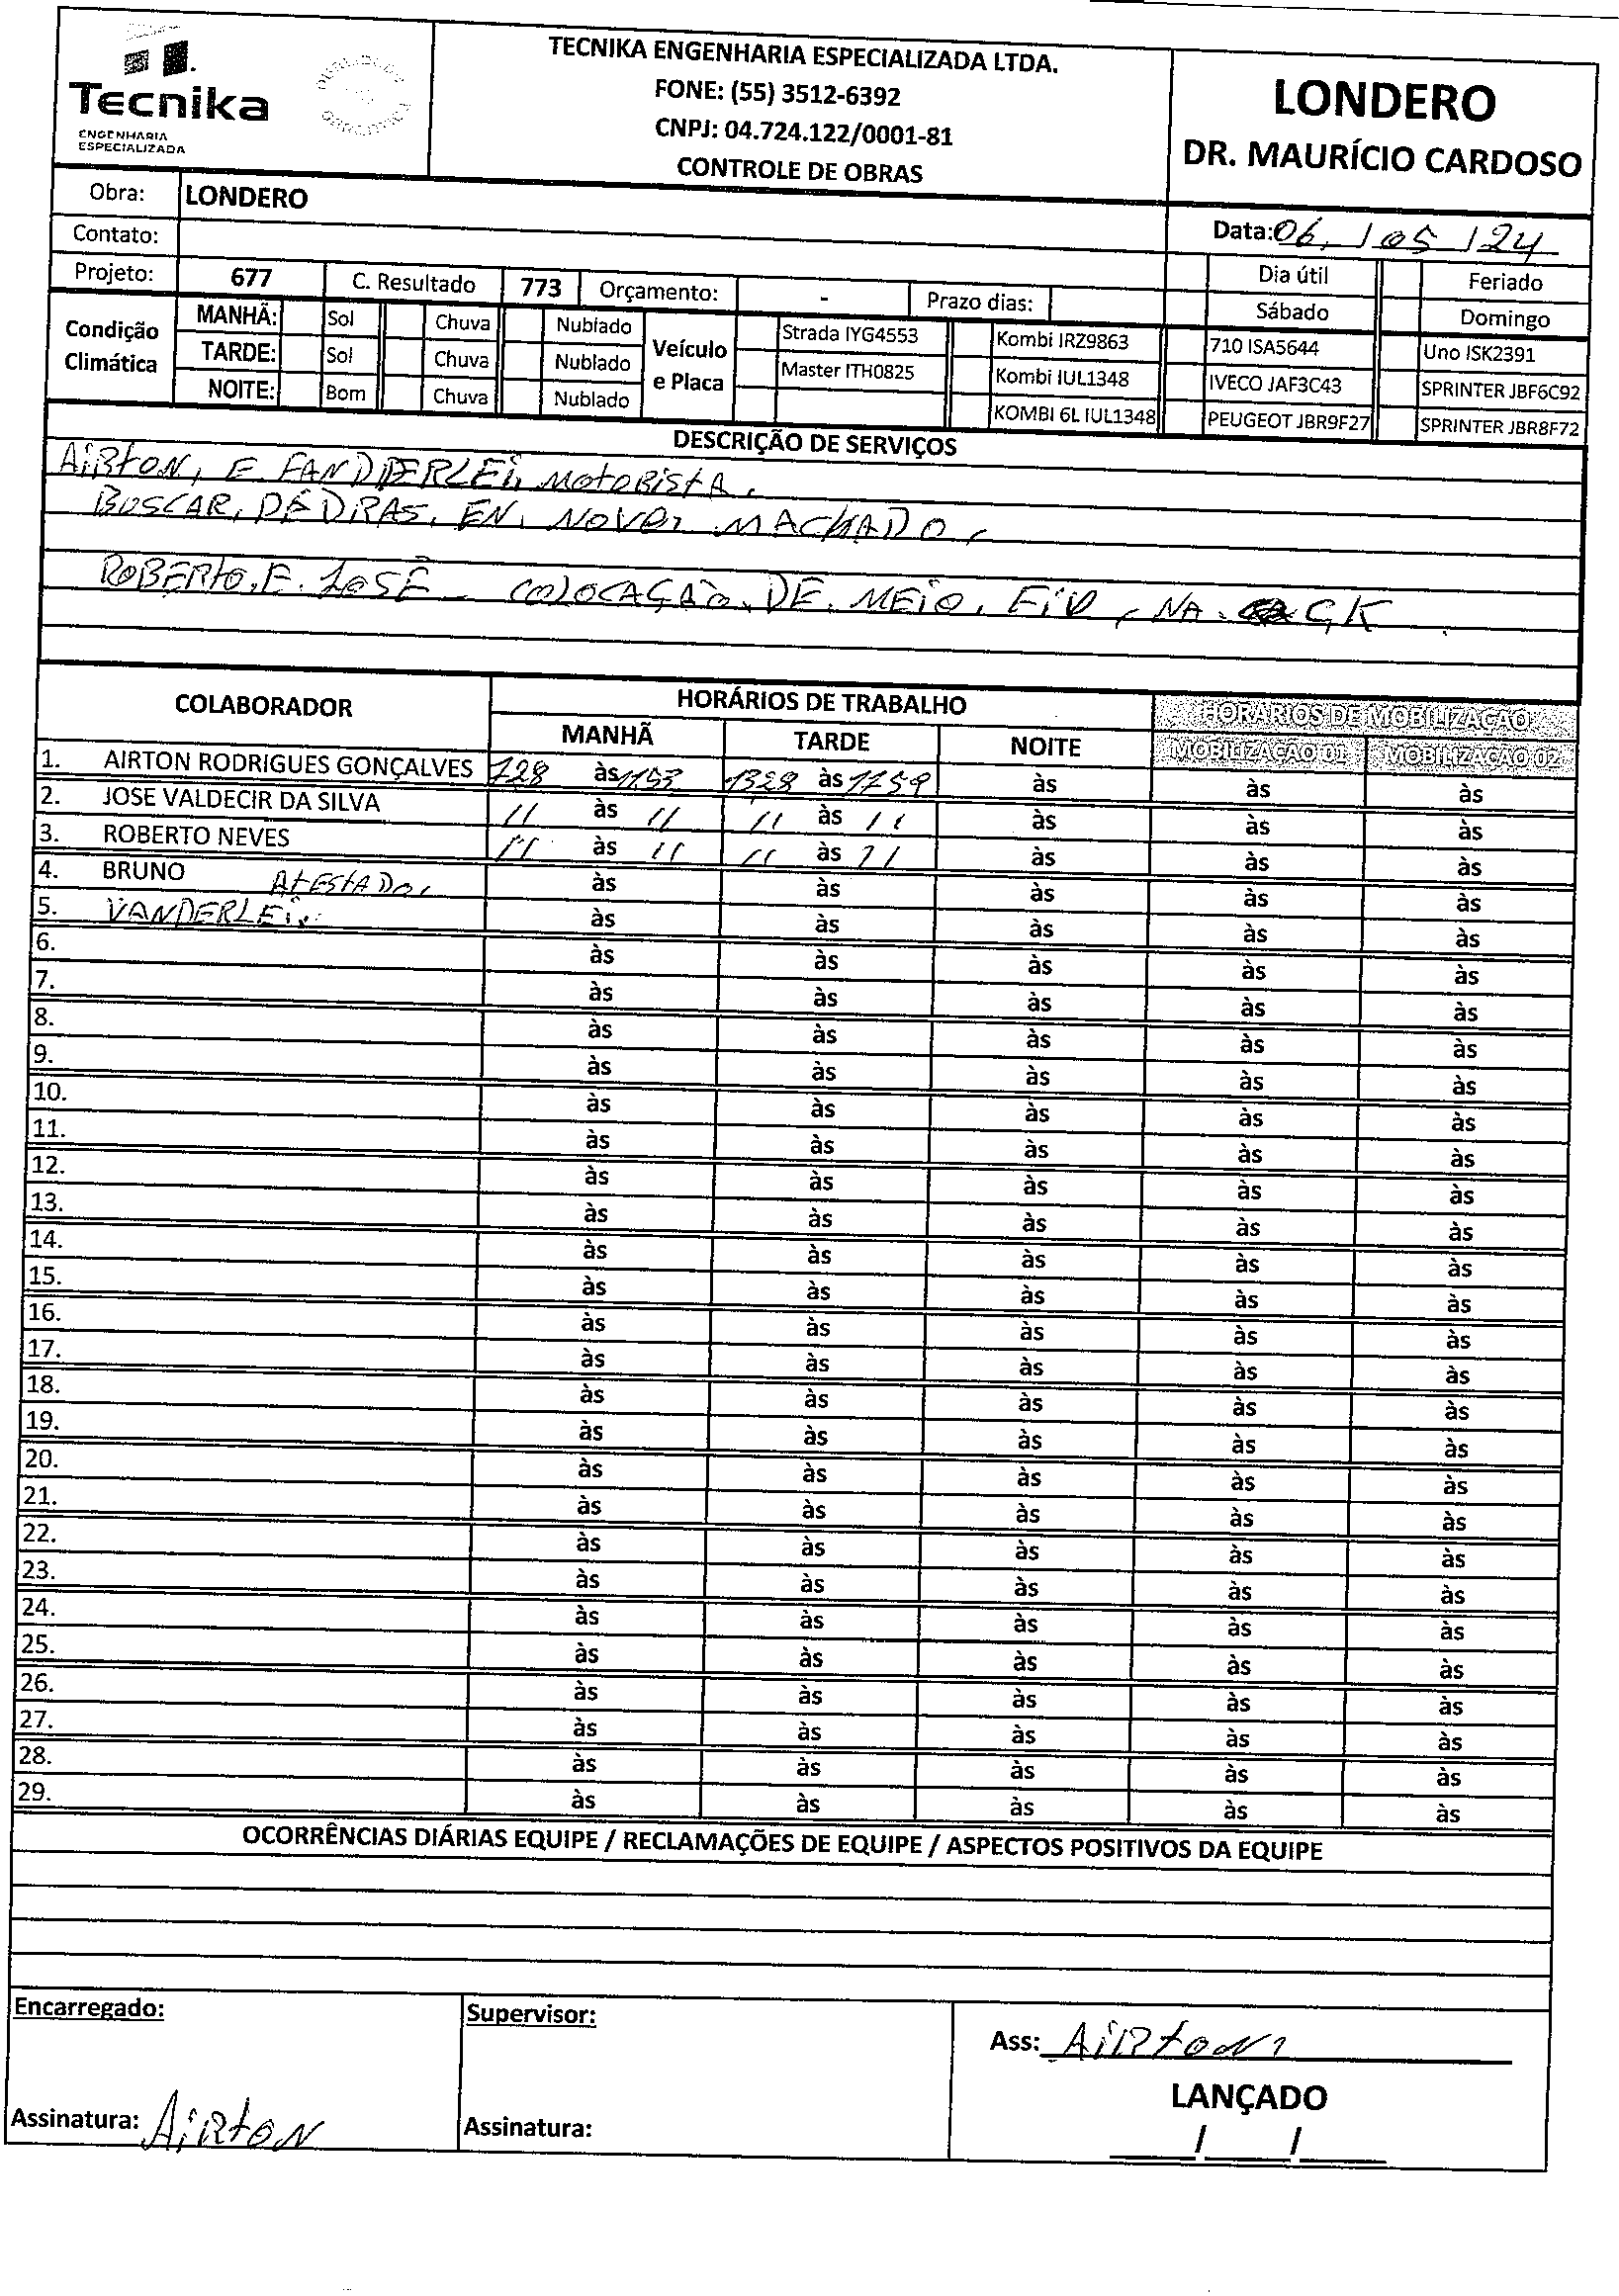 Tecnika
ENGENHARIA
ESPECIALIZADA
TECNIKA ENGENHARIA ESPECIALIZADA LTDA.
FONE: (55) 3512-6392
CNPJ: 04.724.122/0001-81
CONTROLE DE OBRAS
LONDERO
DR. MAURÍCIO CARDOSO
Obra: LONDERO
Contato:
Data: 06, / 05 / 24
Projeto: 677 C. Resultado 773 Orçamento: - Prazo dias: Dia útil Feriado
Sábado Domingo
Condição Climática
MANHÃ: Sol Chuva Nublado
TARDE: Sol Chuva Nublado
NOITE: Bom Chuva Nublado
Veículo e Placa
Strada IYG4553 Kombi IRZ9863 710 ISA5644 Uno ISK2391
Master ITH0825 Kombi IUL1348 IVECO JAF3C43 SPRINTER JBF6C92
KOMBI 6L IUL1348 PEUGEOT JBR9F27 SPRINTER JBR8F72
DESCRIÇÃO DE SERVIÇOS
AIRTON, E. FANDDERLEI, MOTORISTA.
BUSCAR, PEDRAS, EN, MACHADO,
ROBERTO, E. JOSÊ - COLOCAÇÃO, DE, MEIO, FIO, NA CK
COLABORADOR HORÁRIOS DE TRABALHO HORÁRIOS DE MOBILIZAÇÃO
MANHÃ TARDE NOITE MOBILIZAÇÃO 01 MOBILIZAÇÃO 02
1. AIRTON RODRIGUES GONÇALVES 728 às 1153 1328 às 1759 às às às
2. JOSE VALDECIR DA SILVA 11 às 11 11 às 11 às às às
3. ROBERTO NEVES 11 às 11 11 às 11 às às às
4. BRUNO ATESTADO, às às às às às
5. VANDERLEI às às às às às
6. às às às às às
7. às às às às às
8. às às às às às
9. às às às às às
10. às às às às às
11. às às às às às
12. às às às às às
13. às às às às às
14. às às às às às
15. às às às às às
16. às às às às às
17. às às às às às
18. às às às às às
19. às às às às às
20. às às às às às
21. às às às às às
22. às às às às às
23. às às às às às
24. às às às às às
25. às às às às às
26. às às às às às
27. às às às às às
28. às às às às às
29. às às às às às
OCORRÊNCIAS DIÁRIAS EQUIPE / RECLAMAÇÕES DE EQUIPE / ASPECTOS POSITIVOS DA EQUIPE
Encarregado:
Assinatura: AIRTON
Supervisor:
Assinatura:
Ass: AIRTON
LANÇADO
___/___/___